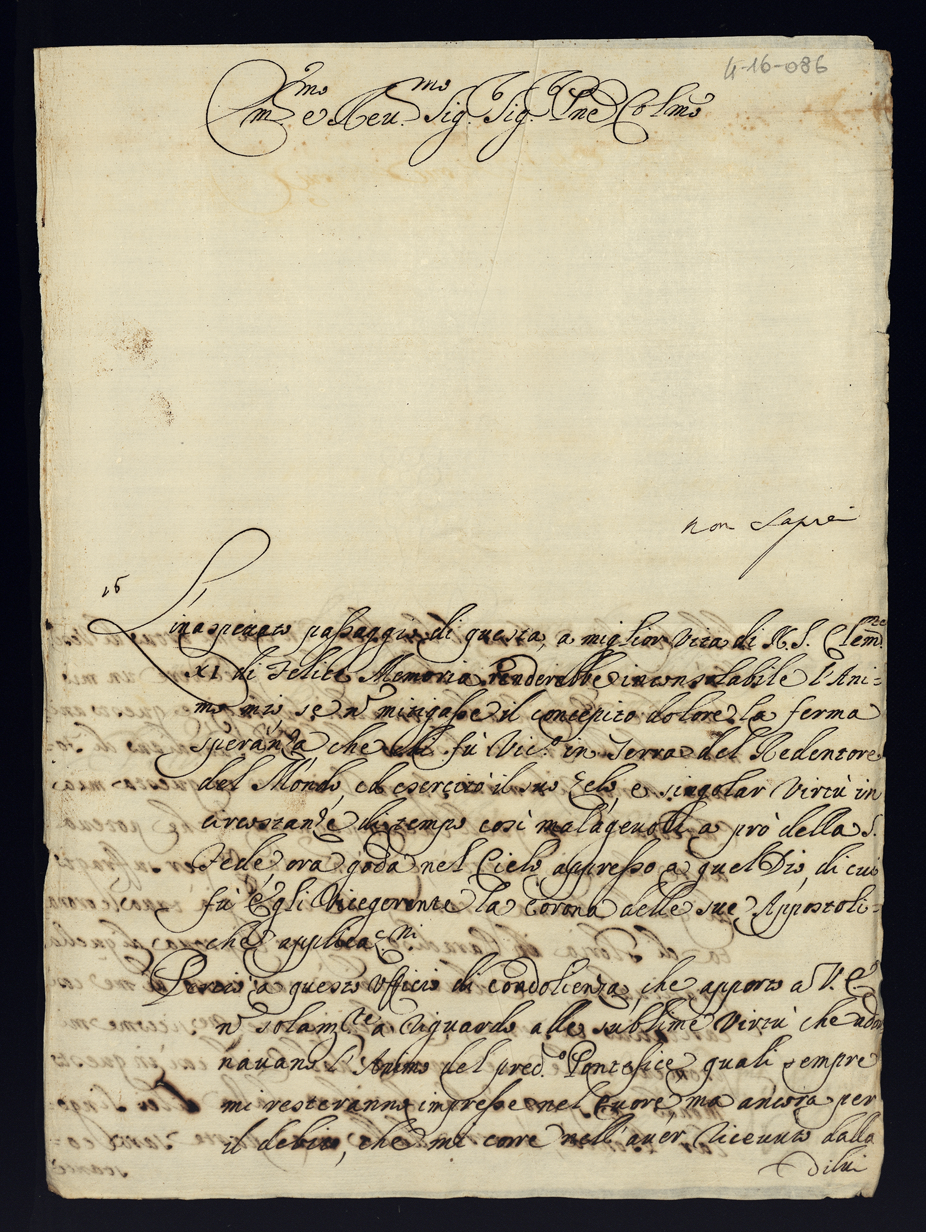 4-16-086
Em.mo e Reu.mo Sig. Sig. Pne Colmo
non Saprei
16
L'inasperato passaggio di questa, a miglior Vita di N. S. Clem.te
XI di Felice Memoria renderebbe inconsolabile l'Ani=
mo mio se nō mitigasse il concepito dolore la ferma
speranza che chi fù Vic.o in Terra del Redentore
del Mondo, ed esercitò il suo Zelo, e singolar Virtù in
circostanze di tempo così malageuoli a prò della S.
Fede, ora goda nel Cielo appresso a quel Dio, di cui
fù Egli Vicegerente la Corona delle sue Appostoli=
che applicac.ni
Porto a questo Ufficio di condolienza, che apporto a V. E.
nō solam.te a riguardo alle sublime Virtù che ador
nauano l'Animo del pred.o Pontefice, quali sempre
mi resteranno impresse nel Cuore ma ancora per
il debito, che mi corre nell'auer riceuuto dalla
di lui